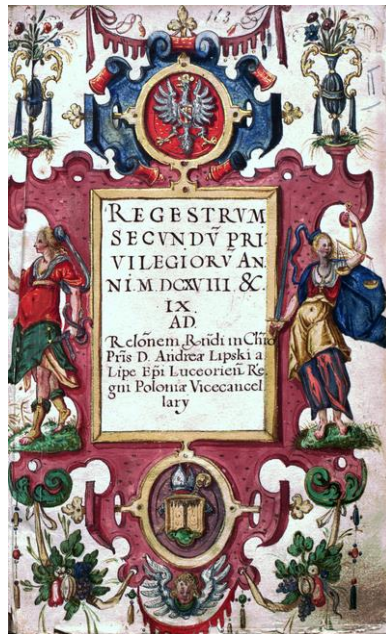 REGESTRVM
SECVNDŨ PRI
VILEGIORŨ AN,
NI M. DCXVIII &.
IX.
AD
Relõnem Rñdi in Chro
Pris D. Andreæ Lipski a
Lipe Epi Luceorien̄ Re,
gni Poloniæ Vicecancel,
lary